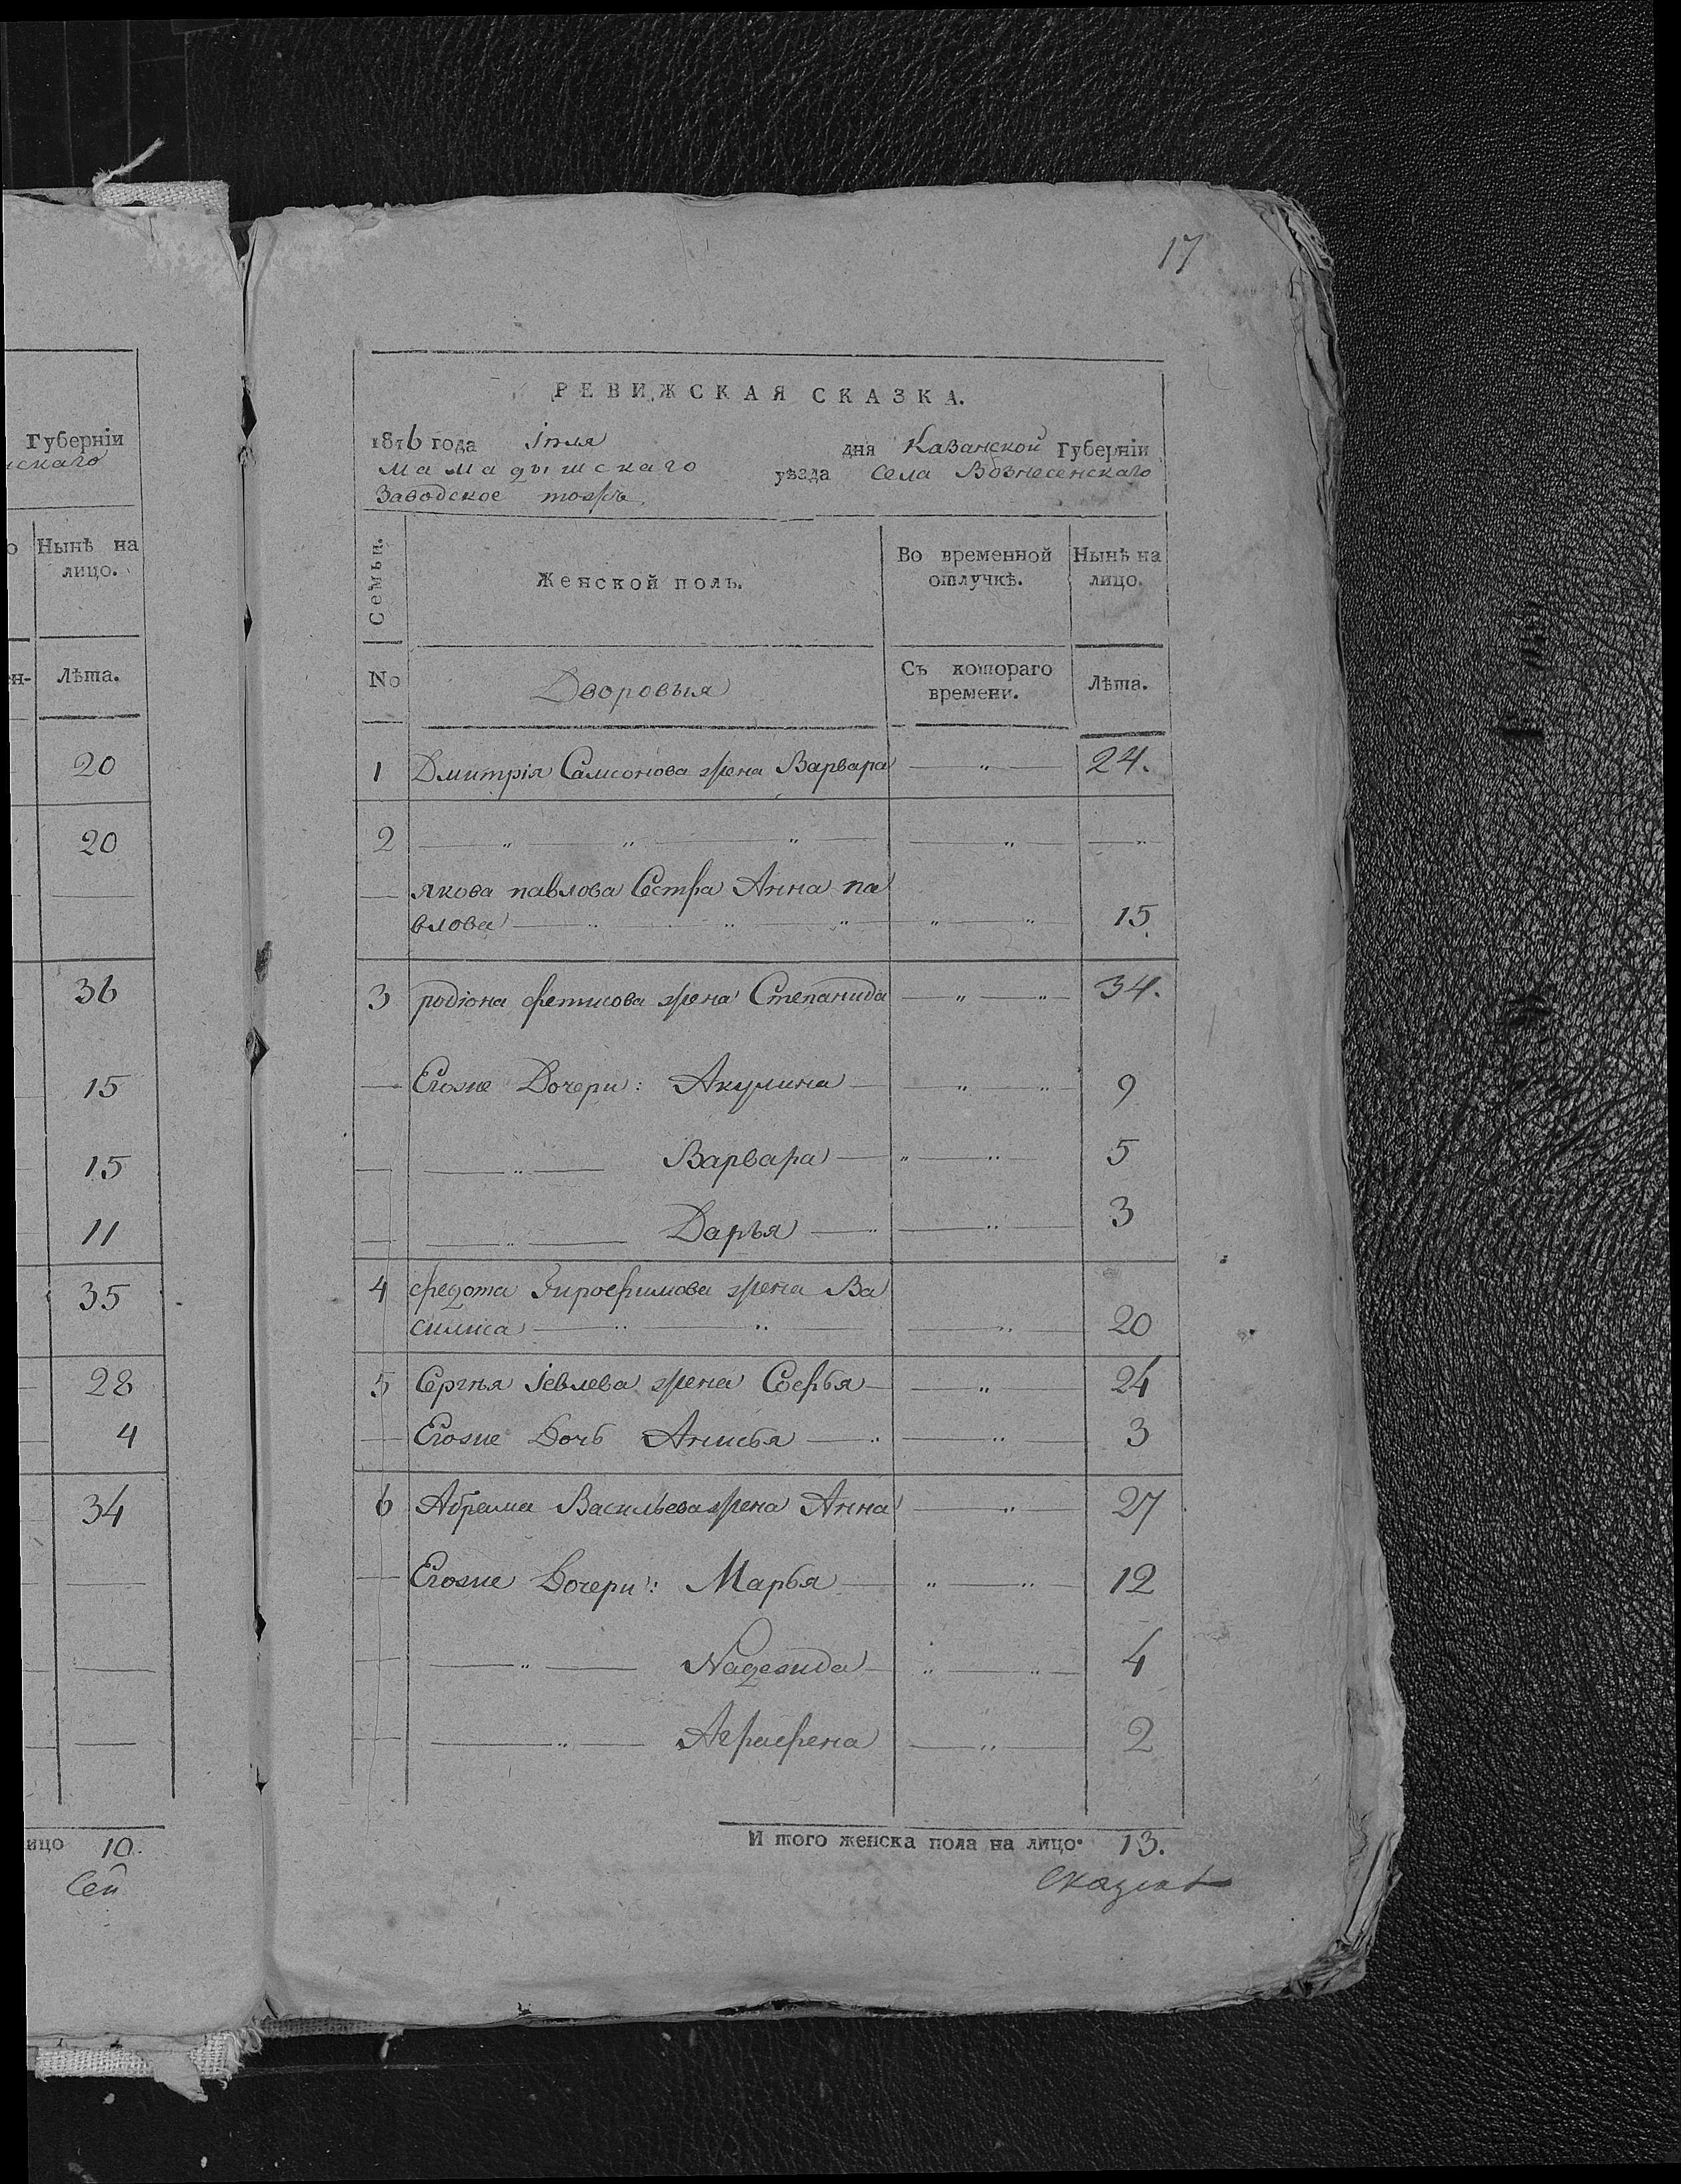 Губернiи
нскаго
о Нынѣ на
лицо.
ен- Лѣта.
20
20
36
15
15
11
35
28
4
34
ицо 10.
17
РЕВИЖСКАЯ СКАЗКА.
1816 года Iюля дня Казанской Губернiи
Мамадышскаго уѣзда села Вознесенскаго
Заводское тожъ
Семьи. Женской полъ. Во временной отлучкѣ. Нынѣ на лицо.
No Дворовыя Съ котораго времени. Лѣта.
1 Дмитрiя Самсонова жена Варвара 24.
2
Якова павлова Сестра Анна па
влова 15.
3 родiона фетисова жена Степанида 34.
Егоже Дочери: Акулина 9
Варвара 5
Дарья 3
4 федота жена Ва
силиса 20
5 Сергѣя Iевлева жена Софья 24
Егоже Дочь Анисья 3
6 Абрама Васильева жена Анна 27
Егоже Дочери: Марья 12
Надежда 4
Аграфена 2
И того женска пола на лицо. 13.